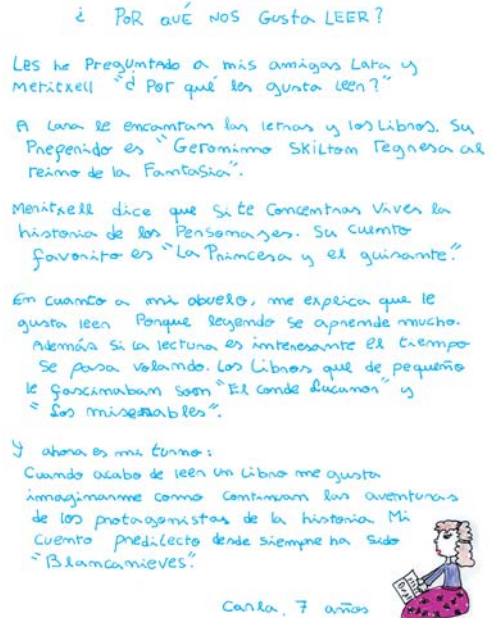 ¿ POR QUÉ NOS GUSTA LEER?
Les he Preguntado a mis amigas Lara y
Meritxell "¿ Por qué les gusta leer?"
A Lara le encantan las letras y los Libros. Su
Preferido es "Geronimo Skiltom regresa al
reino de la Fantasía".
Meritxell dice que si te concentras vives la
historia de los Personajes. Su cuento
favorito es "La Princesa y el guisante."
En cuanto a mi abuelo, me explica que le
gusta leer Porque leyendo se aprende mucho.
Además si la lectura es interesante el tiempo
se pasa volando. Los Libros que de pequeño
le fascinaban son "El conde Lucanor" y
"Los miserables".
Y ahora es mi turno:
Cuando acabo de leer un Libro me gusta
imaginarme como continuan las aventuras
de los protagonistas de la historia. Mi
cuento predilecto desde siempre ha sido
"Blancanieves".
Carla, 7 años